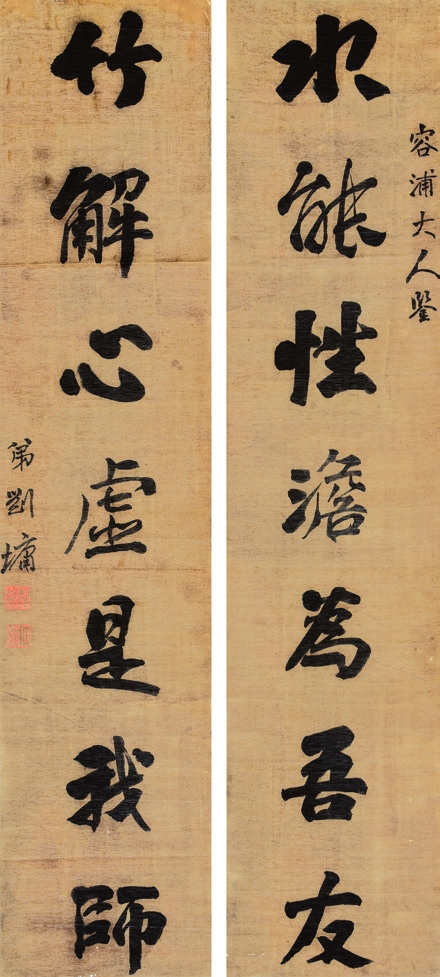 容浦大人鑒
水能性澹為吾友
竹解心虛是我師
弟劉墉